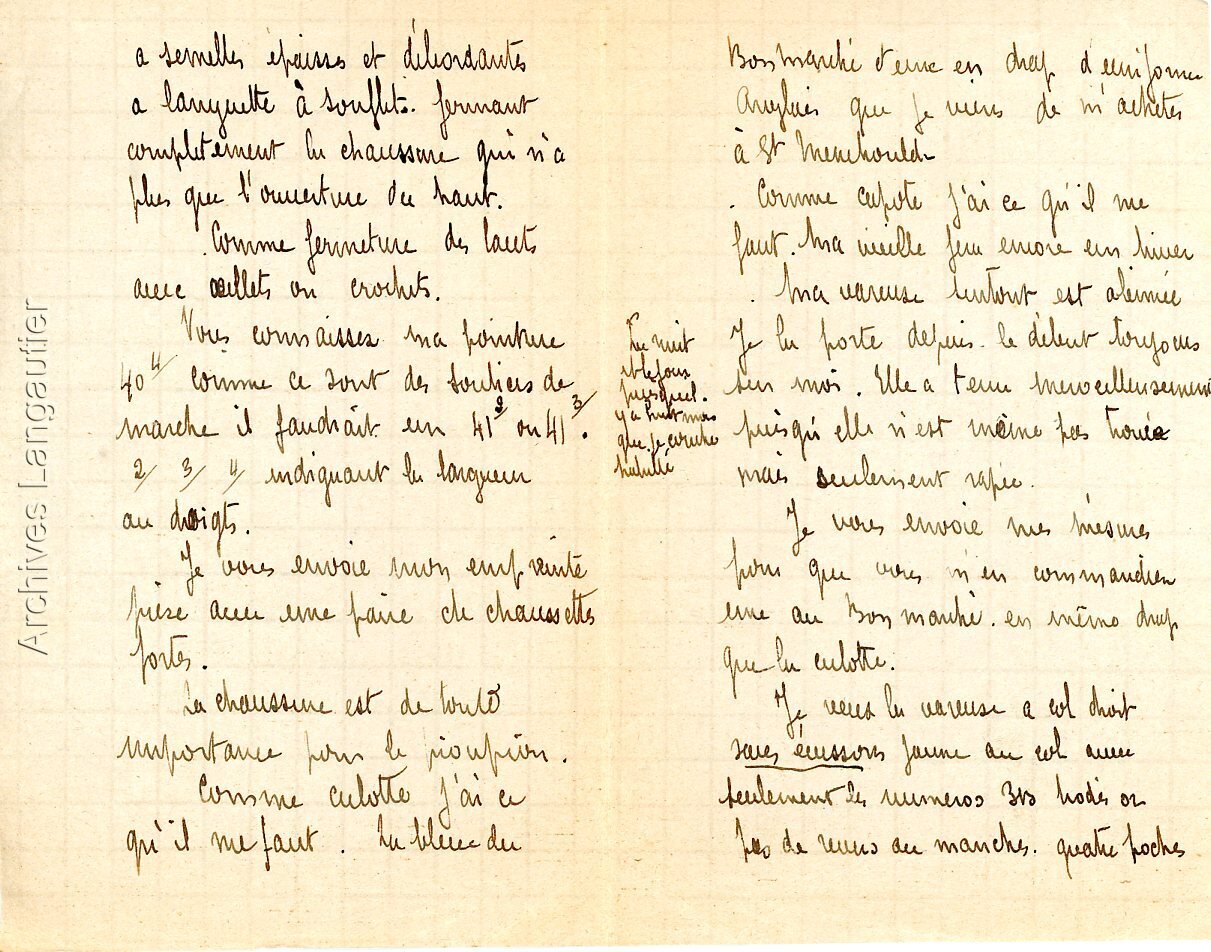 a semelles épaisses et débordantes
a languette à soufflets. fermant
completement la chaussure qui n'a
plus que l'ouverture du haut.
. Comme fermeture des lacets
avec œillets ou crochets.
Vous connaissez ma pointure
40 4/ comme ce sont des souliers de
marche il faudrait un 41 2/ ou 41 3/.
2/ 3/ 4/ indiquant la largueur
au doigts.
Je vous envoie mon empreinte
prise avec une paire de chaussettes
fortes.
La chaussure est de toute
importance pour le pioupiou.
Comme culotte j'ai ce
qu'il me faut. La bleue du
Bon marché et une en drap d'uniforme
Anglais que je viens de m'acheter
à St Menehould
. Comme capote j'ai ce qu'il me
faut. Ma vieille fera encore un hiver
. Ma vareuse surtout est abimée
Je la porte depuis le début toujours
sur moi. Elle a tenu merveilleusement
puisqu'elle n'est même pas trouée
mais seulement rapée.
La nuit
et le jour
puisque
y a huit mois
que je couche
habillé
Je vous envoie mes mesures
pour que vous m'en commandiez
une au Bon marché. en même drap
que la culotte.
Je veux la vareuse a col droit
sans écussons jaune au col avec
seulement les numeros 313 brodés or
pas de revers au manches. quatre poches
Archives Langautier